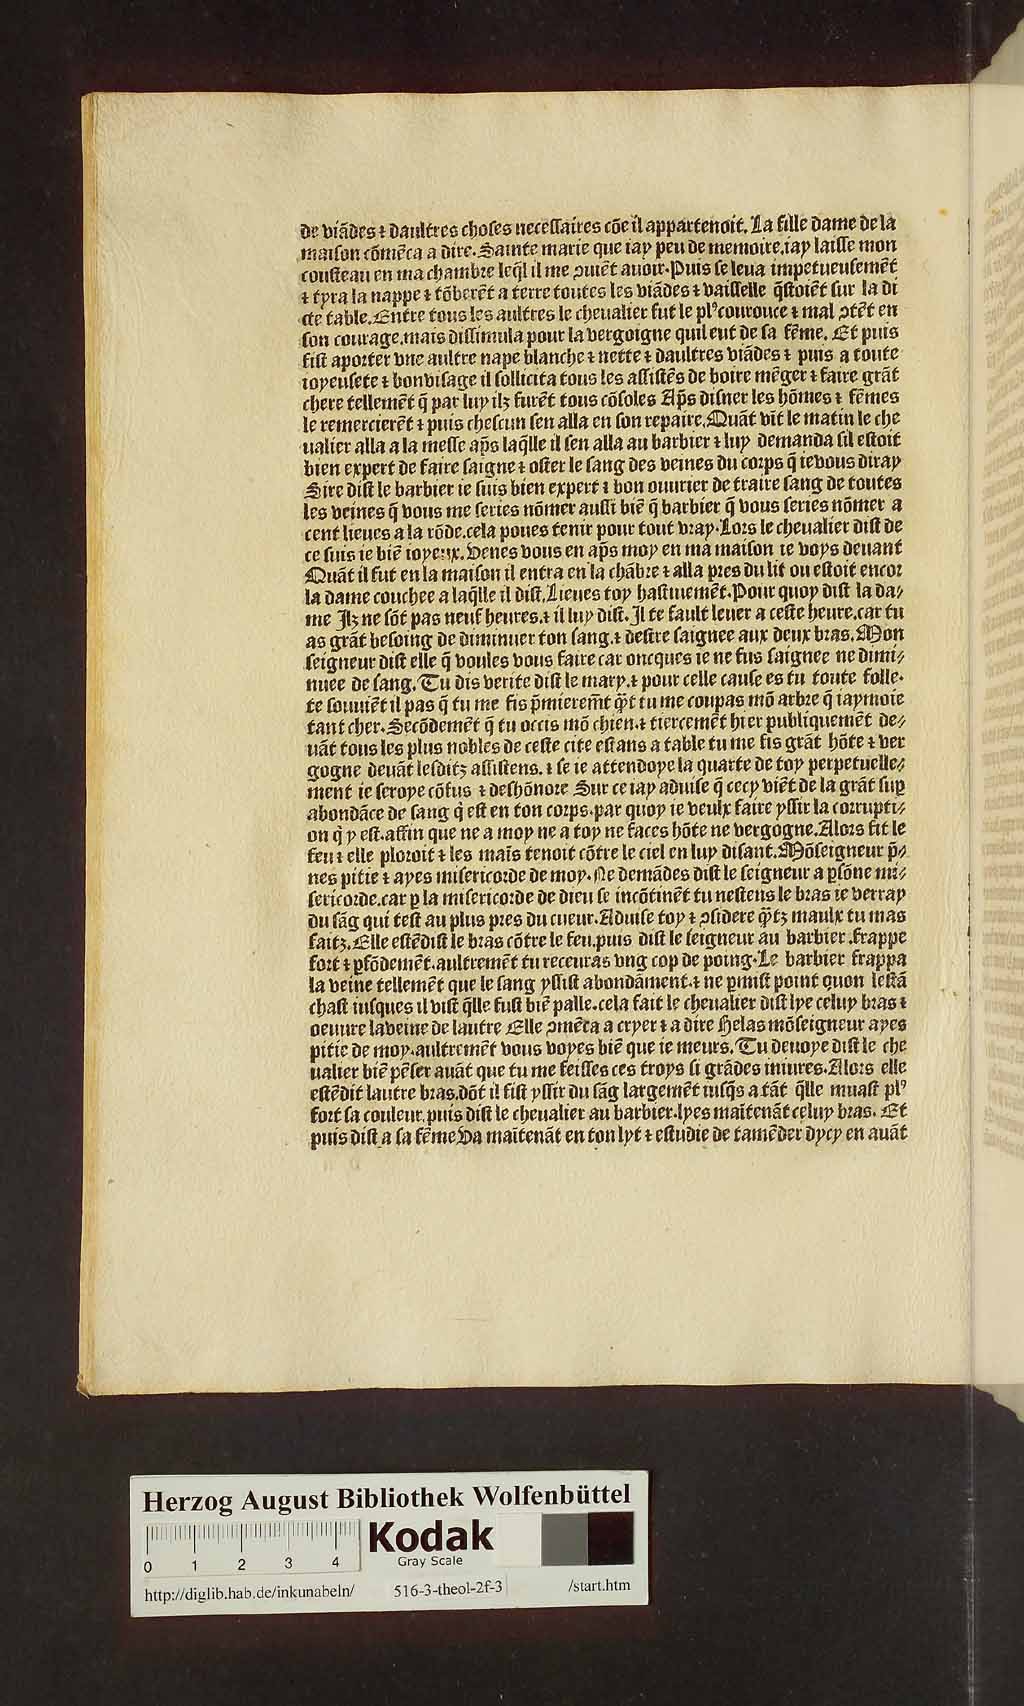 de viãdes ⁊ daultres choses necessaires cõe il appartenoit. La fille dame de la
maison cõmẽca a dire. Sainte marie que iay peu de memoire, iay laisse mon
cousteau en ma chambre leq̃l il me ꝯuiẽt auoir. Puis se leua impetueusemẽt
⁊ tyra la nappe ⁊ tõberẽt a terre toutes les viãdes ⁊ vaisselle q̃stoiẽt sur la di
cte table. Entre tous les aultres le cheualier fut le plꝰ courouce ⁊ mal ꝯtẽt en
son courage. mais dissimula pour la vergoigne quil eut de sa fẽme. Et puis
fist aporter vne aultre nape blanche ⁊ nette ⁊ daultres viãdes ⁊ puis a toute
ioyeusete ⁊ bonvisage il sollicita tous les assistẽs de boire mẽger ⁊ faire grãt
chere tellemẽt q̃ par luy ilz furẽt tous cõsoles Ap̃s disner les hõmes ⁊ fẽmes
le remercierẽt ⁊ puis chescun sen alla en son repaire. Quãt vĩt le matin le che
ualier alla a la messe ap̃s laq̃lle il sen alla au barbier ⁊ luy demanda sil estoit
bien expert de faire saigne ⁊ oster le sang des veines du corps q̃ ievous diray
Sire dist le barbier ie suis bien expert ⁊ bon ouurier de traire sang de toutes
les veines q̃ vous me series nõmer aussi biẽ q̃ barbier q̃ vous series nõmer a
cent lieues a la rõde. cela poues tenir pour tout vray. Lors le cheualier dist de
ce suis ie biẽ ioyeux. Venes vous en ap̃s moy en ma maison ie voys deuant
Quãt il fut en la maison il entra en la chãbre ⁊ alla pres du lit ou estoit encor
la dame couchee a laq̃lle il dist. Lieues toy hastiuemẽt. Pour quoy dist la da-
me Ilz ne sõt pas neuf heures. ⁊ il luy dist. Il te fault leuer a ceste heure. car tu
as grãt besoing de diminuer ton sang. ⁊ destre saignee aux deux bras. Mon
seigneur dist elle q̃ voules vous faire car oncques ie ne fus saignee ne dimi-
nuee de sang. Tu dis verite dist le mary. ⁊ pour celle cause es tu toute folle.
te souuiẽt il pas q̃ tu me fis p̃mierem̃t q̃t tu me coupas mõ arbre q̃ iaymoie
tant cher. Secõdemẽt q̃ tu occis mõ chien. ⁊ tiercemẽt hier publiquemẽt de-
uãt tous les plus nobles de ceste cite estans a table tu me fis grãt hõte ⁊ ver
gogne deuãt lesditz assistens. ⁊ se ie attendoye la quarte de toy perpetuelle-
ment ie seroye cõfus ⁊ deshõnore Sur ce iay aduise q̃ cecy viẽt de la grãt suꝑ
abondãce de sang q̃ est en ton corps. par quoy ie veulx faire yssir la corrupti-
on q̃ y est. affin que ne a moy ne a toy ne faces hõte ne vergogne. Alors fit le
feu ⁊ elle ploroit ⁊ les maĩs tenoit cõtre le ciel en luy disant. Mõseigneur p̃-
nes pitie ⁊ ayes misericorde de moy. Ne demãdes dist le seigneur a ꝑsõne mi-
sericorde. car ꝑ la misericorde de dieu se incõtinẽt tu nestens le bras ie verray
du sãg qui test au plus pres du cueur. Aduise toy ⁊ ꝯsidere q̃tz maulx tu mas
faitz. Elle estẽdist le bras cõtre le feu. puis dist le seigneur au barbier. frappe
fort ⁊ ꝑfõdemẽt. aultremẽt tu receuras vng cop de poing. Le barbier frappa
la veine tellemẽt que le sang yssist abondãment. ⁊ ne ꝑmist point quon lestã
chast iusques il vist q̃lle fust biẽ palle. cela fait le cheualier dist lye celuy bras ⁊
oeuure laveine de lautre Elle ꝯmẽca a cryer ⁊ a dire Helas mõseigneur ayes
pitie de moy. aultremẽt vous voyes biẽ que ie meurs. Tu deuoye dist le che
ualier biẽ pẽser auãt que tu me feisses ces troys si grãdes iniures. Alors elle
estẽdit lautre bras. dõt il fist yssir du sãg largemẽt iusq̃s a tãt q̃lle muast plꝰ
fort sa couleur. puis dist le cheualier au barbier. lyes maĩtenãt celuy bras. Et
puis dist a sa fẽme Va maĩtenãt en ton lyt ⁊ estudie de tamẽder dycy en auãt
Herzog August Bibliothek Wolfenbüttel
0 1 2 3 4
Kodak
Gray Scale
http://diglib.hab.de/inkunabeln/ 516-3-theol-2f-3 /start.htm